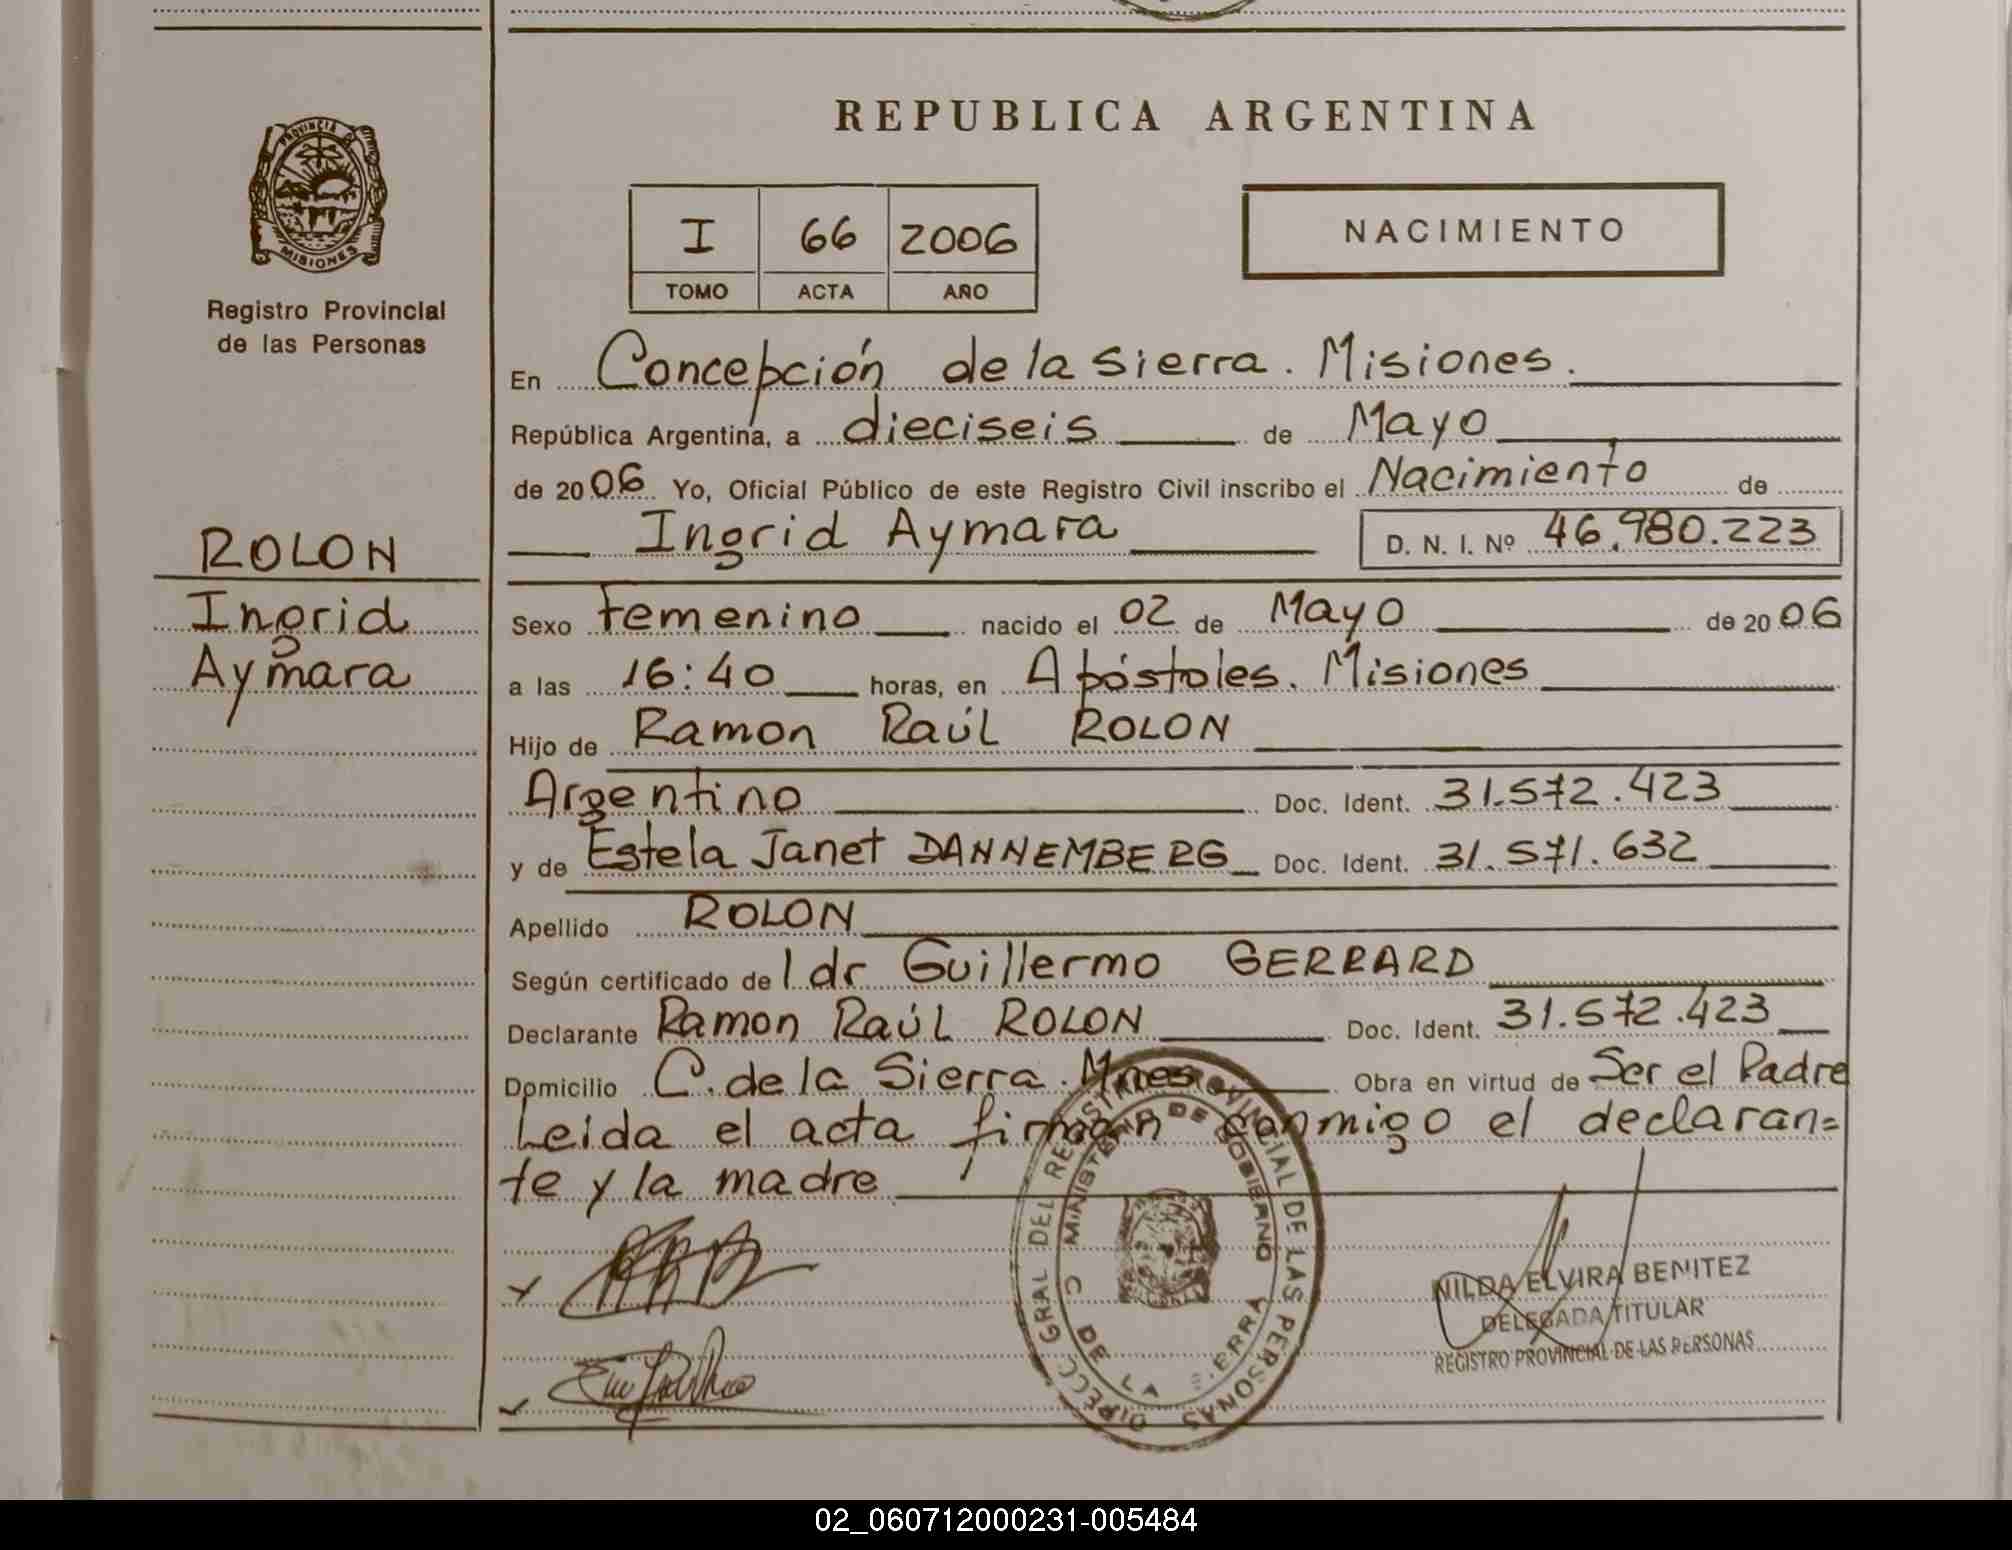 REPUBLICA ARGENTINA
PROVINCIA DE
MISIONES
Registro Provincial
de las Personas
I 66 2006
TOMO ACTA AÑO
NACIMIENTO
ROLON
Ingrid
Aymara
En Concepción de la Sierra. Misiones.
República Argentina, a dieciseis de Mayo
de 2006 Yo, Oficial Público de este Registro Civil inscribo el Nacimiento de
Ingrid Aymara D. N. I. Nº 46.980.223
Sexo Femenino nacido el 02 de Mayo de 2006
a las 16:40 horas, en Apóstoles. Misiones
Hijo de Ramon Raúl ROLON
Argentino Doc. Ident. 31.572.423
y de Estela Janet DANNEMBERG Doc. Ident. 31.571.632
Apellido ROLON
Según certificado de 1 dr Guillermo GERRARD
Declarante Ramon Raúl ROLON Doc. Ident. 31.572.423
Domicilio C. de la Sierra. Mnes Obra en virtud de Ser el Padre
Leida el acta firman conmigo el declaran=
te y la madre
DIRECC GRAL DEL REGISTRO PROVINCIAL DE LAS PERSONAS
MINISTERIO DE GOBIERNO
C DE LA SIERRA
NILDA ELVIRA BENITEZ
DELEGADA TITULAR
REGISTRO PROVINCIAL DE LAS PERSONAS
02_060712000231-005484